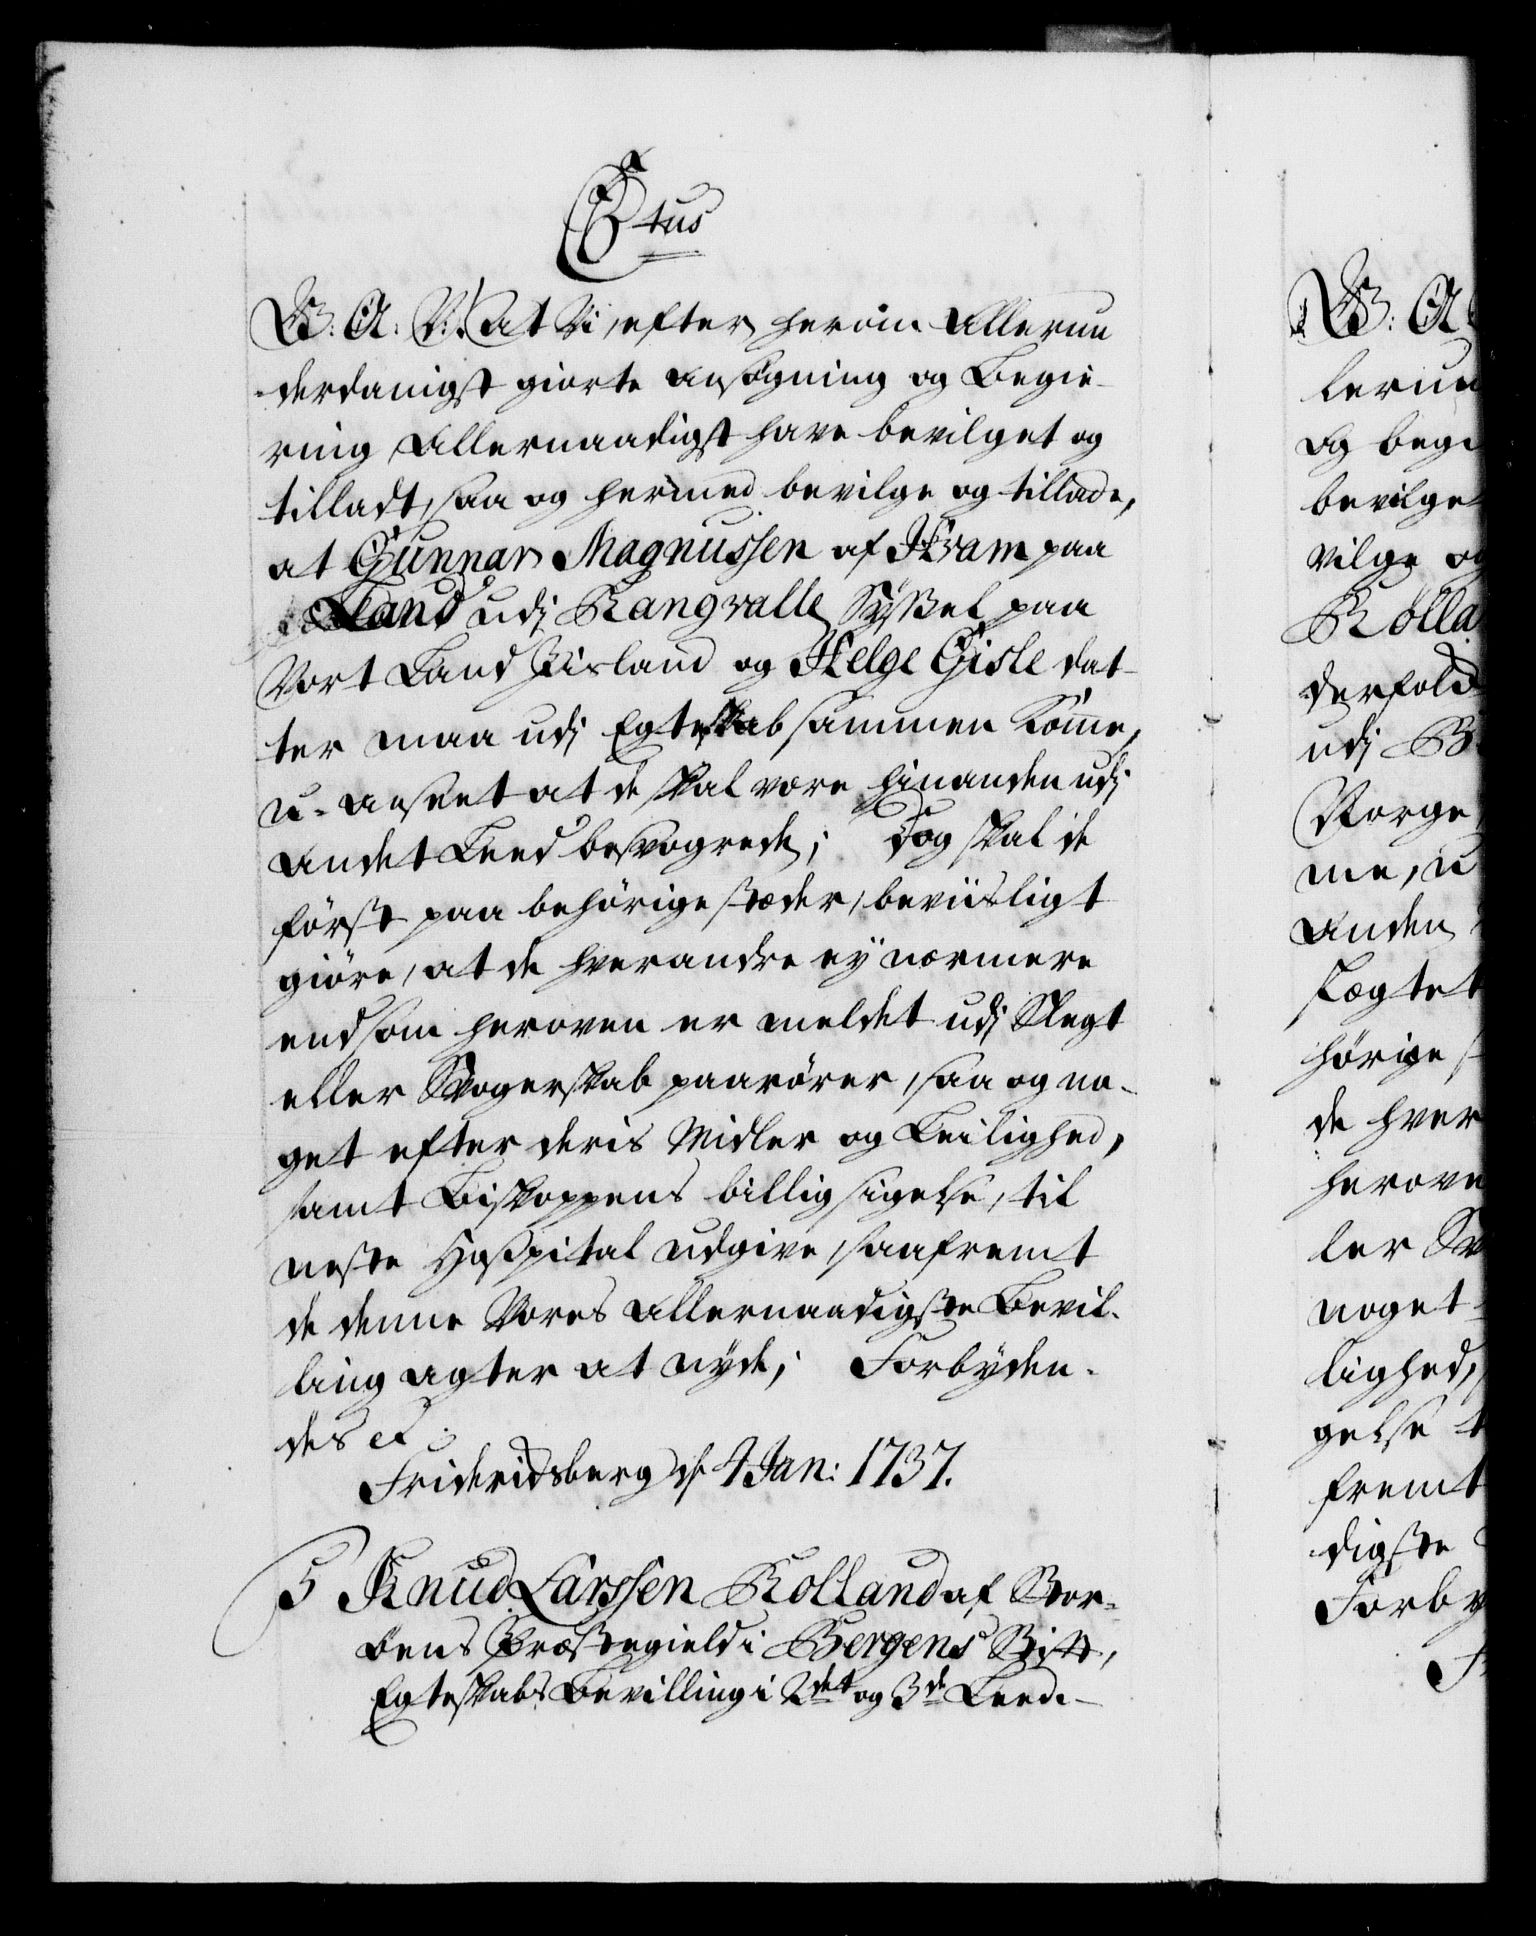 C 6tus
G: A: V: at Vi, efter herom Allerun
derdanigst giorte ansøgning og Begie-
ring Allernaadigst have bevilget og
tilladt, saa og hermed bevilge og tillade,
at Gunnar Magnussen af Hvam paa
Land udj Rangvalle Syssel paa
Vort Land Iisland og Helge Gisle dat-
ter maa udj Egteskab sammen komme,
u-anseet at de skal være hinanden udi
andet Leed besvogrede; Dog skal de
først paa behørige stæder, beviisligt
giøre, at de hverandre ey nærmere
end som heroven er meldet udj Slegt
eller Svogerskab paarører, saa og no-
get efter deris Midler og Leilighed,
samt Biskoppens billigsigelse, til
neste Hospital udgive, saafremt
de denne Vores Allernaadigste Bevil-
ling agter at nyde; Forbyden-
des etc:
Frideridsberg d 4 Jan: 1737.
5 Knud Larssen Rolland af Stor-
öens Præstegield i Bergens Stift,
Egteskabs Bevilling i 2det og 3de Leed.-
G: A
lerun
og begi
bevilge
vilge og
Rolla
derfold
udj B
Norge
me, u
anden
slægtet
hørige s
de hver
herove
ler Sv
noget
lighed,
gelse t
fremt
digste
Forby
F